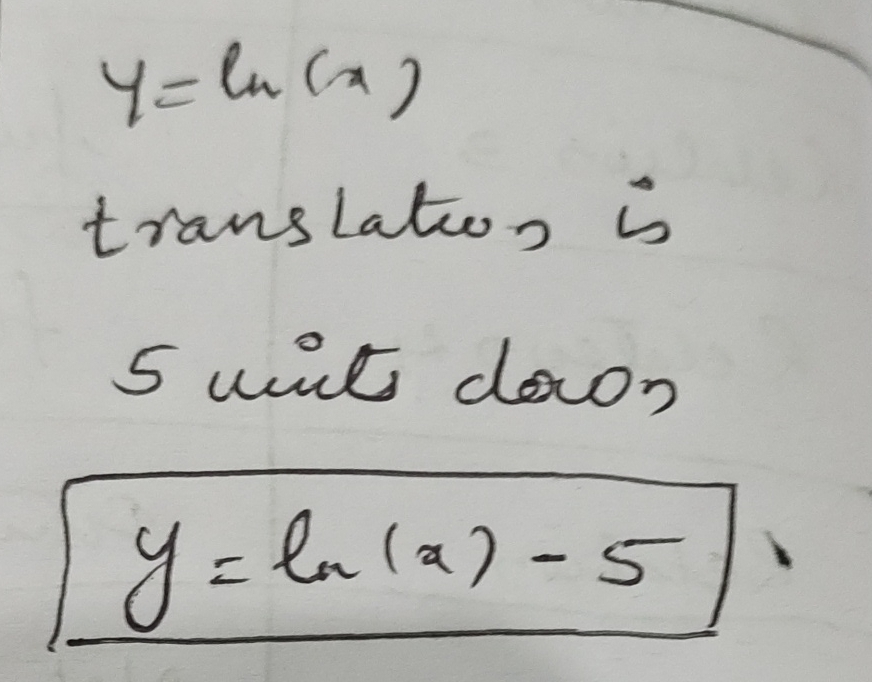 y = ln(x)
translation is
5 units down
y = ln(x) - 5